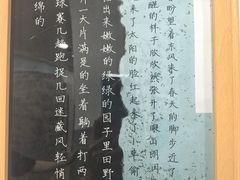 盼望着东风来了春天的脚步近了
醒的样子欣欣然张开了眼山朗润
来了太阳的脸红起来了小草偷
出来嫩嫩的绿绿的园子里田野
一大片满是的坐着躺着打两
球赛几趟跑捉几回迷藏风轻悄
绵的